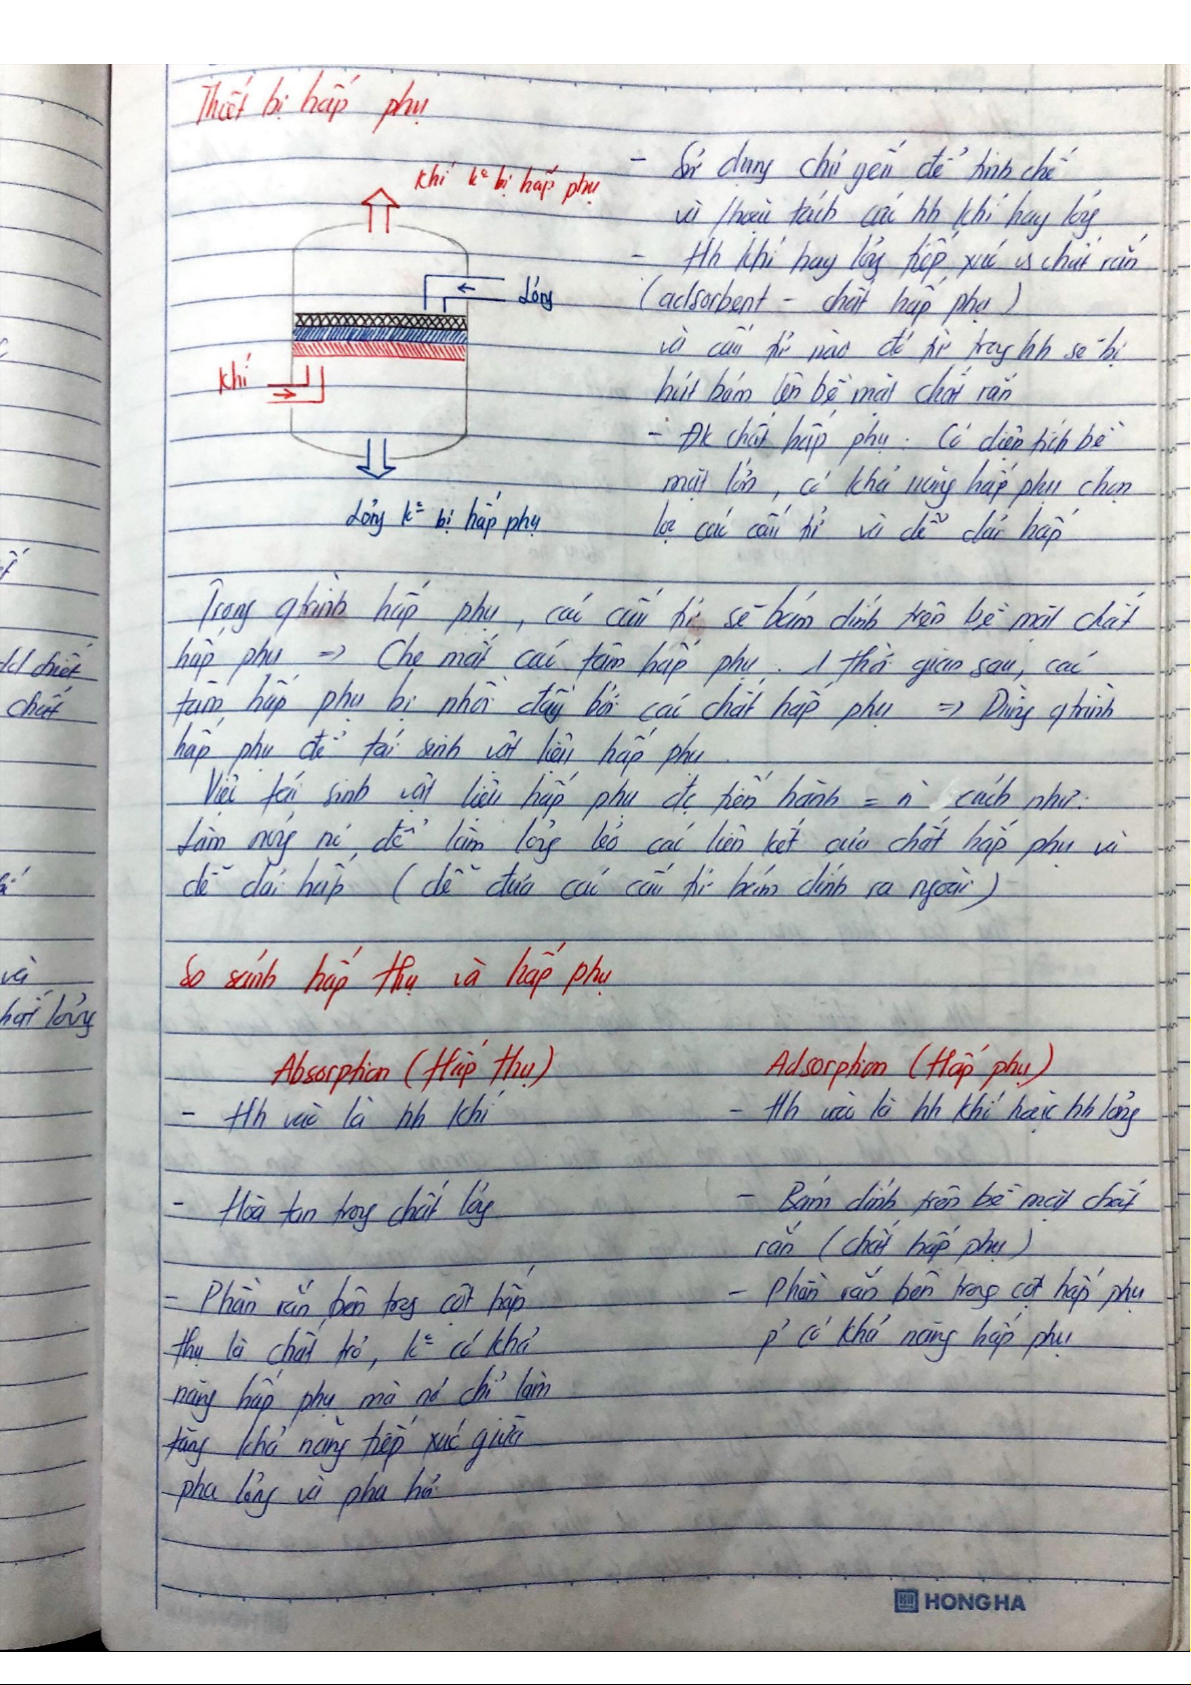 Thiết bị hấp phụ
khí k° bị hấp phụ
Lỏng
khí
Lỏng k° bị hấp phụ
- Sử dụng chủ yếu để tinh chế
và/hoặc tách các hh khí hay lỏng
- Hh khí hay lỏng tiếp xúc vs chất rắn
(adsorbent - chất hấp phụ)
và cấu tử nào đó từ trong hh sẽ bị
hút bám lên bề mặt chất rắn
- Đk chất hấp phụ: Có diện tích bề
mặt lớn, có khả năng hấp phụ chọn
lọc các cấu tử và dễ dải hấp
Trong qtrình hấp phụ, các cấu tử sẽ bám dính trên bề mặt chất
hấp phụ => Che mất các tâm hấp phụ. 1 thời gian sau, các
tâm hấp phụ bị nhồi đầy bởi các chất hấp phụ => Dừng qtrình
hấp phụ để tái sinh vật liệu hấp phụ.
Việc tái sinh vật liệu hấp phụ đc tiến hành = n` cách như:
Làm nóng nó để làm lỏng lẻo các liên kết của chất hấp phụ và
dễ dải hấp (dễ đưa các cấu tử bám dính ra ngoài)
So sánh hấp thụ và hấp phụ
Absorption (Hấp thụ)
- Hh vào là hh khí
- Hòa tan trong chất lỏng
- Phần rắn bên trong cột hấp
thụ là chất trơ, k° có khả
năng hấp phụ mà nó chỉ làm
tăng khả năng tiếp xúc giữa
pha lỏng và pha hơi
Adsorption (Hấp phụ)
- Hh vào là hh khí hoặc hh lỏng
- Bám dính trên bề mặt chất
rắn (chất hấp phụ)
- Phần rắn bên trong cột hấp phụ
p' có khả năng hấp phụ
và
chất lỏng
chất
HONG HA